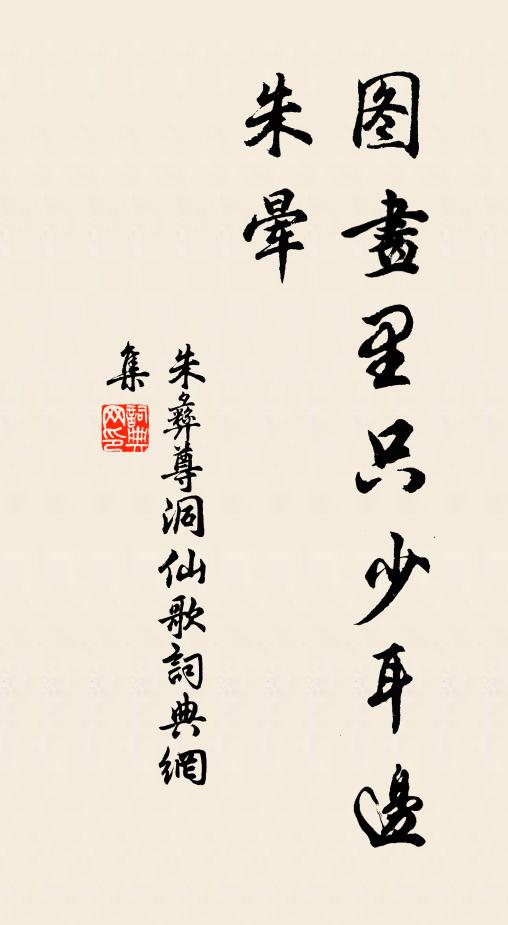 图畫里只少耳邊
朱暈
朱彝尊洞仙歌詞典網
集
詞典网印